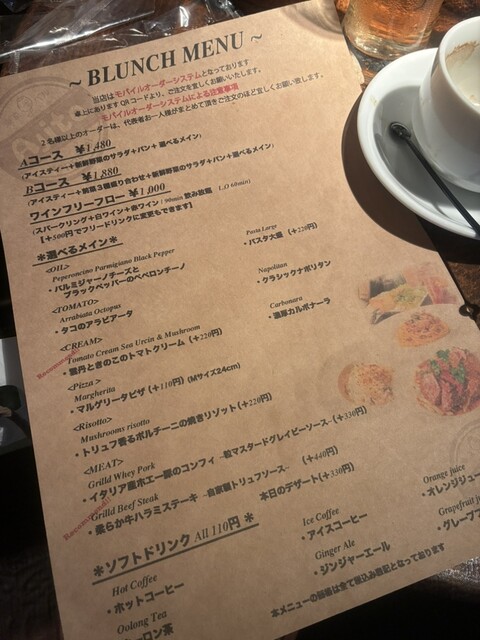 ~ BLUNCH MENU ~
当店はモバイルオーダーシステムとなっております
卓上にありますQRコードより、ご注文を宜しくお願いいたします。
モバイルオーダーシステムによる注意事項
2名様以上のオーダーは、代表者お一人様がまとめて頂きご注文のほど宜しくお願い致します。
Aコース ¥1,480
(アイスティー+新鮮野菜のサラダ+パン+選べるメイン)
Bコース ¥1,880
(アイスティー+前菜3種盛り合わせ+新鮮野菜のサラダ+パン+選べるメイン)
ワインフリーフロー ¥1,000
(スパークリング+白ワイン+赤ワイン / 90min 飲み放題 L.O 60min)
【+500円でフリードリンクに変更もできます】
*選べるメイン*
<OIL>
Peperoncino Parmigiano Black Pepper
・パルミジャーノチーズと
ブラックペッパーのペペロンチーノ
Pasta Large
・パスタ大盛 (+220円)
<TOMATO>
Arrabiata Octopus
・タコのアラビアータ
Napolitan
・クラシックナポリタン
<CREAM>
Recommend!!
Tomato Cream Sea Urcin & Mushroom
・雲丹ときのこのトマトクリーム (+220円)
Carbonara
・濃厚カルボナーラ
<Pizza >
Margherita
・マルゲリータピザ (+110円) (Mサイズ24cm)
<Risotto>
Mushrooms risotto
・トリュフ香るポルチーニの焼きリゾット (+220円)
<MEAT>
Grilld Whey Pork
・イタリア産ホエー豚のコンフィ ~粒マスタードグレイビーソース~ (+330円)
Recommend!!
Grilld Beef Steak
・柔らか牛ハラミステーキ ~自家製トリュフソース~ (+440円)
本日のデザート(+330円)
*ソフトドリンク All 110円 *
Hot Coffee
・ホットコーヒー
Ice Coffee
・アイスコーヒー
Orange juice
・オレンジジュー
Oolong Tea
ロン茶
Ginger Ale
・ジンジャーエール
Grapefruit ju
・グレープフ
本メニューの価格は全て税込み表記となっております